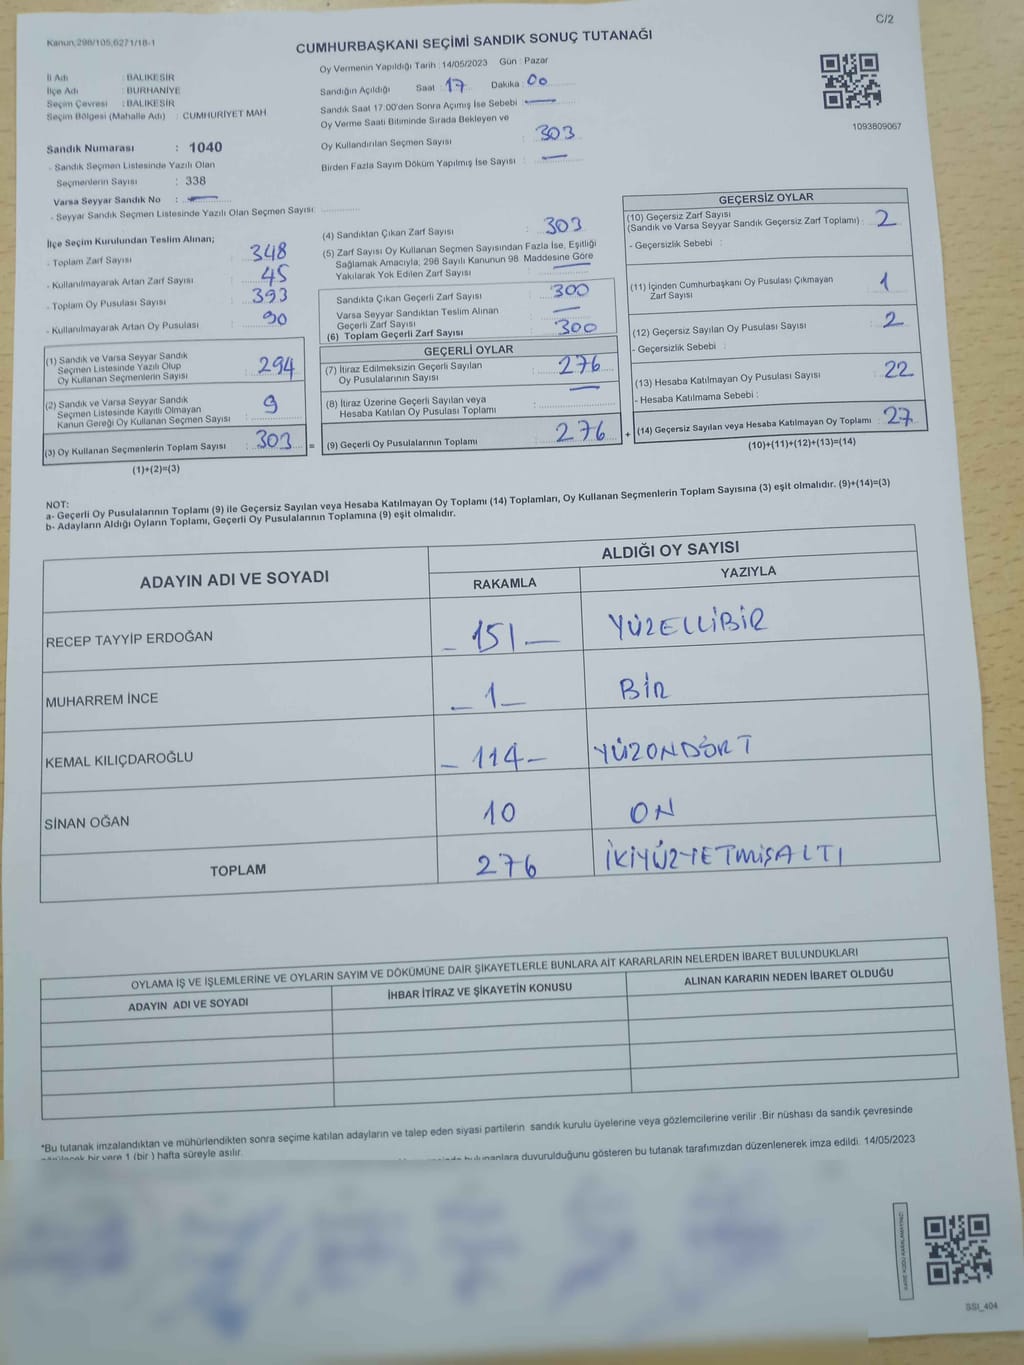 C/2
Kanun,298/105,6271/18-1
CUMHURBAŞKANI SEÇİMİ SANDIK SONUÇ TUTANAĞI
İl Adı : BALIKESİR
İlçe Adı : BURHANİYE
Seçim Çevresi : BALIKESİR
Seçim Bölgesi (Mahalle Adı) : CUMHURİYET MAH
Sandık Numarası : 1040
- Sandık Seçmen Listesinde Yazılı Olan
Seçmenlerin Sayısı : 338
Varsa Seyyar Sandık No :
- Seyyar Sandık Seçmen Listesinde Yazılı Olan Seçmen Sayısı:
Oy Vermenin Yapıldığı Tarih : 14/05/2023 Gün : Pazar
Sandığın Açıldığı Saat : 17 Dakika : 00
Sandık Saat 17:00'den Sonra Açımış İse Sebebi :
Oy Verme Saati Bitiminde Sırada Bekleyen ve
Oy Kullandırılan Seçmen Sayısı : 303
Birden Fazla Sayım Döküm Yapılmış İse Sayısı :
1093809067
İlçe Seçim Kurulundan Teslim Alınan;
- Toplam Zarf Sayısı : 348
- Kullanılmayarak Artan Zarf Sayısı : 45
- Toplam Oy Pusulası Sayısı : 393
- Kullanılmayarak Artan Oy Pusulası : 90
(1) Sandık ve Varsa Seyyar Sandık
Seçmen Listesinde Yazılı Olup
Oy Kullanan Seçmenlerin Sayısı : 294
(2) Sandık ve Varsa Seyyar Sandık
Seçmen Listesinde Kayıtlı Olmayan
Kanun Gereği Oy Kullanan Seçmen Sayısı : 9
(3) Oy Kullanan Seçmenlerin Toplam Sayısı : 303 =
(1)+(2)=(3)
(4) Sandıktan Çıkan Zarf Sayısı : 303
(5) Zarf Sayısı Oy Kullanan Seçmen Sayısından Fazla İse, Eşitliği
Sağlamak Amacıyla, 298 Sayılı Kanunun 98. Maddesine Göre
Yakılarak Yok Edilen Zarf Sayısı :
Sandıkta Çıkan Geçerli Zarf Sayısı : 300
Varsa Seyyar Sandıktan Teslim Alınan
Geçerli Zarf Sayısı :
(6) Toplam Geçerli Zarf Sayısı : 300
GEÇERLİ OYLAR
(7) İtiraz Edilmeksizin Geçerli Sayılan
Oy Pusulalarının Sayısı : 276
(8) İtiraz Üzerine Geçerli Sayılan veya
Hesaba Katılan Oy Pusulası Toplamı :
(9) Geçerli Oy Pusulalarının Toplamı : 276 +
GEÇERSİZ OYLAR
(10) Geçersiz Zarf Sayısı
(Sandık ve Varsa Seyyar Sandık Geçersiz Zarf Toplamı) : 2
- Geçersizlik Sebebi :
(11) İçinden Cumhurbaşkanı Oy Pusulası Çıkmayan
Zarf Sayısı : 1
(12) Geçersiz Sayılan Oy Pusulası Sayısı : 2
- Geçersizlik Sebebi :
(13) Hesaba Katılmayan Oy Pusulası Sayısı : 22
- Hesaba Katılmama Sebebi :
(14) Geçersiz Sayılan veya Hesaba Katılmayan Oy Toplamı : 27
(10)+(11)+(12)+(13)=(14)
NOT:
a- Geçerli Oy Pusulalarının Toplamı (9) ile Geçersiz Sayılan veya Hesaba Katılmayan Oy Toplamı (14) Toplamları, Oy Kullanan Seçmenlerin Toplam Sayısına (3) eşit olmalıdır. (9)+(14)=(3)
b- Adayların Aldığı Oyların Toplamı, Geçerli Oy Pusulalarının Toplamına (9) eşit olmalıdır.
ADAYIN ADI VE SOYADI
ALDIĞI OY SAYISI
RAKAMLA YAZIYLA
RECEP TAYYİP ERDOĞAN – 151 – YÜZELLİBİR
MUHARREM İNCE – 1 – BİR
KEMAL KILIÇDAROĞLU – 114 – YÜZONDÖRT
SİNAN OĞAN 10 ON
TOPLAM 276 İKİYÜZYETMİŞALTI
OYLAMA İŞ VE İŞLEMLERİNE VE OYLARIN SAYIM VE DÖKÜMÜNE DAİR ŞİKAYETLERLE BUNLARA AİT KARARLARIN NELERDEN İBARET BULUNDUKLARI
ADAYIN ADI VE SOYADI İHBAR İTİRAZ VE ŞİKAYETİN KONUSU ALINAN KARARIN NEDEN İBARET OLDUĞU
*Bu tutanak imzalandıktan ve mühürlendikten sonra seçime katılan adayların ve talep eden siyasi partilerin sandık kurulu üyelerine veya gözlemcilerine verilir .Bir nüshası da sandık çevresinde
bir yere 1 (bir ) hafta süreyle asılır.
bulunanlara duyurulduğunu gösteren bu tutanak tarafımızdan düzenlenerek imza edildi. 14/05/2023
SSI_404